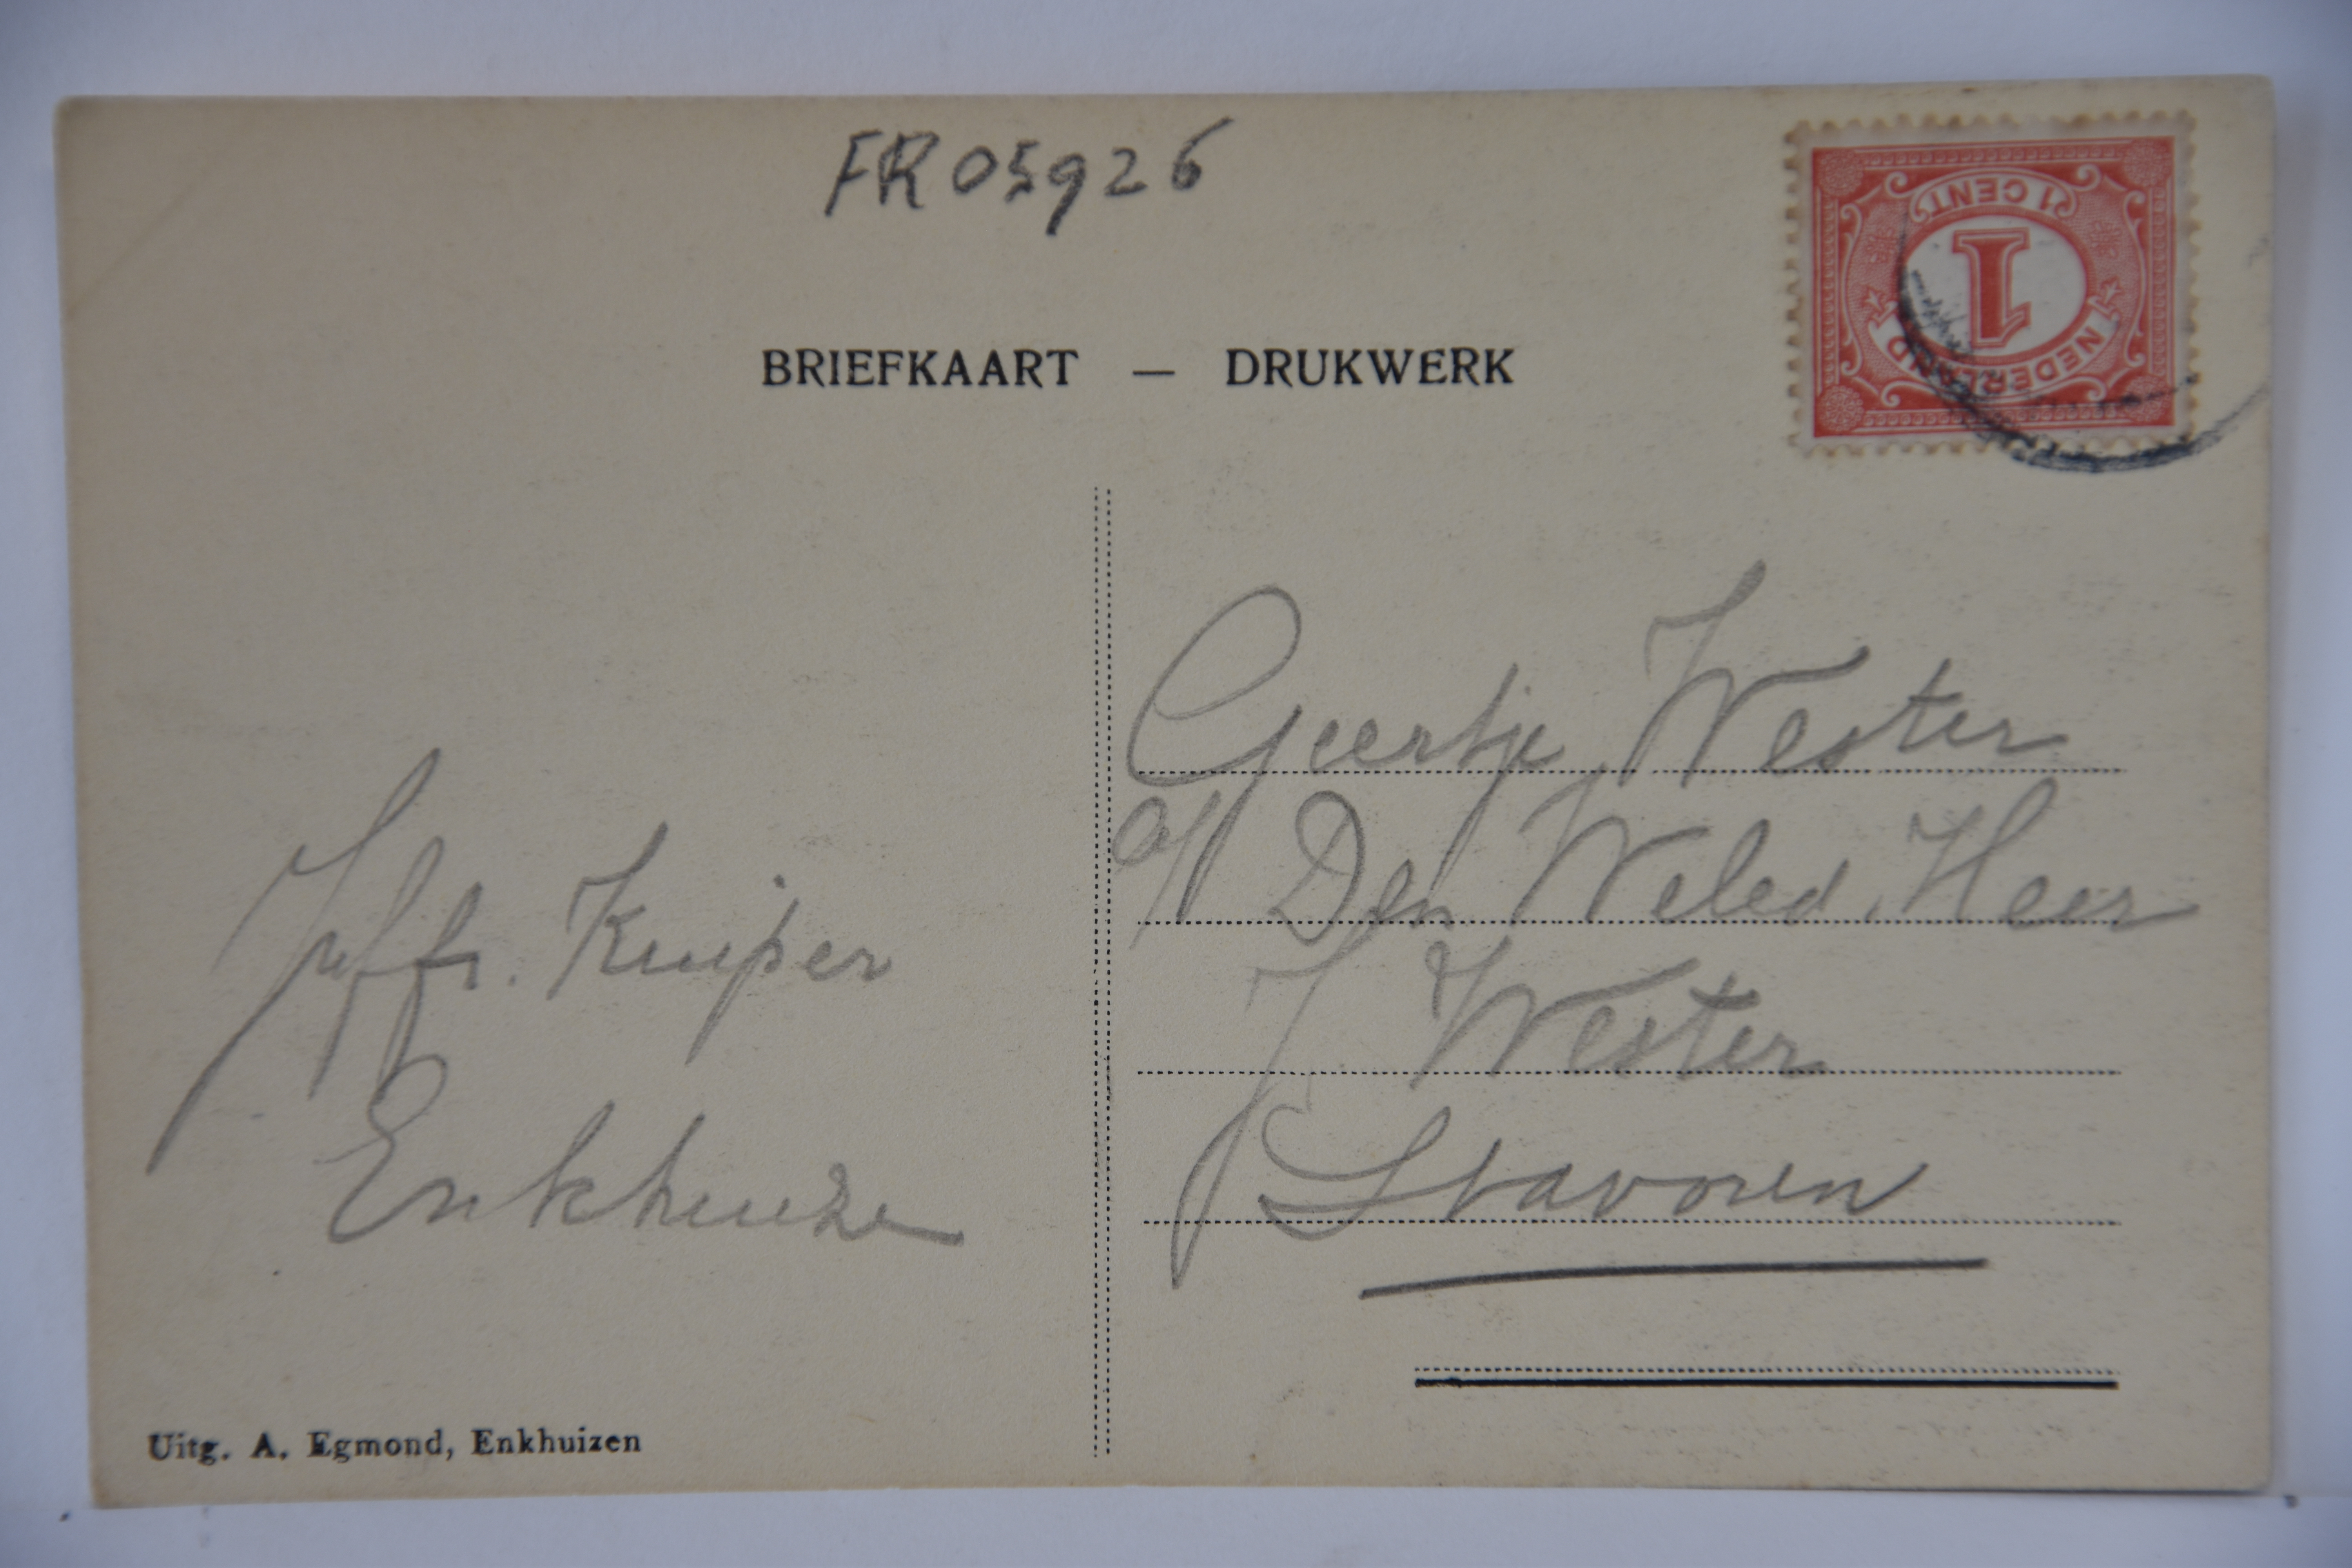 FR05926
1 CENT
1
NEDERLAND
BRIEFKAART — DRUKWERK
Geertje Wester
a/d Den Weled. Heer
J Wester
Stavoren
Juffr. Kuiper
Enkhuize
Uitg. A. Egmond, Enkhuizen